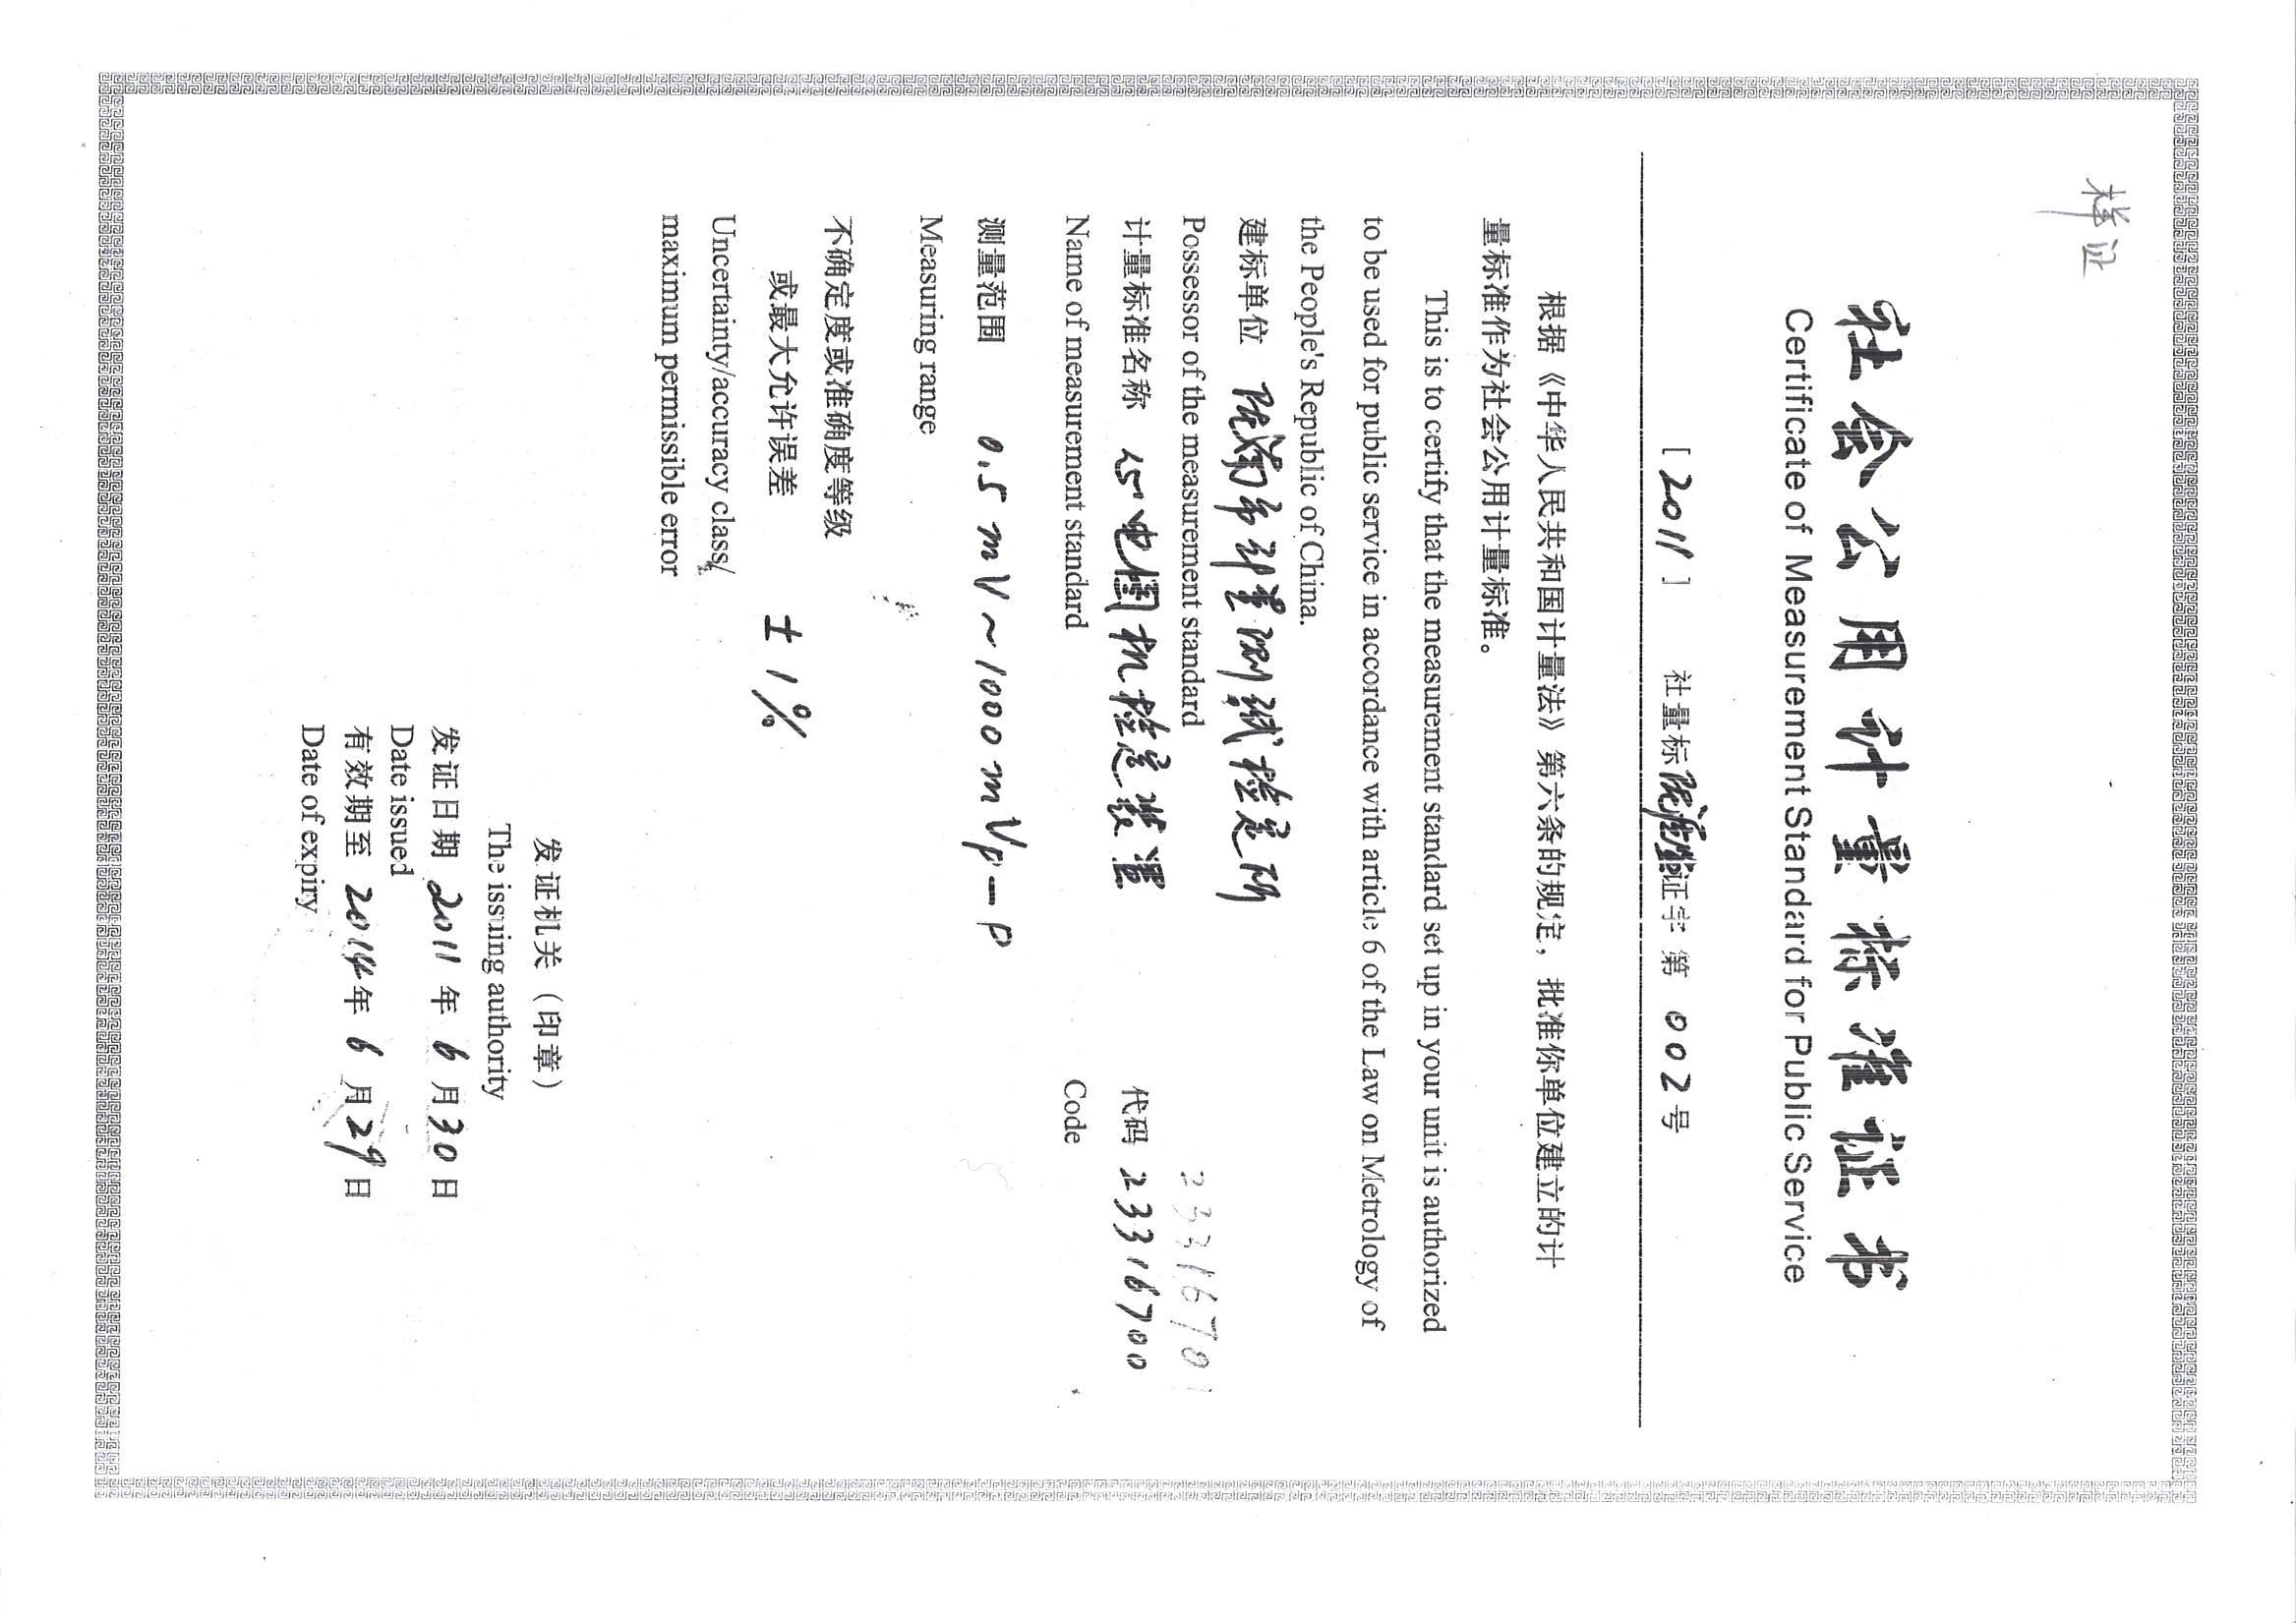 样证
社会公用计量标准证书
Certificate of Measurement Standard for Public Service
[2011] 社量标陇 证字第 002 号
根据《中华人民共和国计量法》第六条的规定，批准你单位建立的计
量标准作为社会公用计量标准。
This is to certify that the measurement standard set up in your unit is authorized
to be used for public service in accordance with article 6 of the Law on Metrology of
the People's Republic of China.
建标单位 陇南市计量测试检定所
Possessor of the measurement standard
2331670
计量标准名称 心电图机检定装置 代码 23316700
Name of measurement standard Code
测量范围 0.5 mV～1000 mVp－p
Measuring range
不确定度或准确度等级
或最大允许误差 ±1%
Uncertainty/accuracy class/
maximum permissible error
发证机关（印章）
The issuing authority
发证日期 2011 年 6 月 30 日
Date issued
有效期至 2014 年 6 月 29 日
Date of expiry